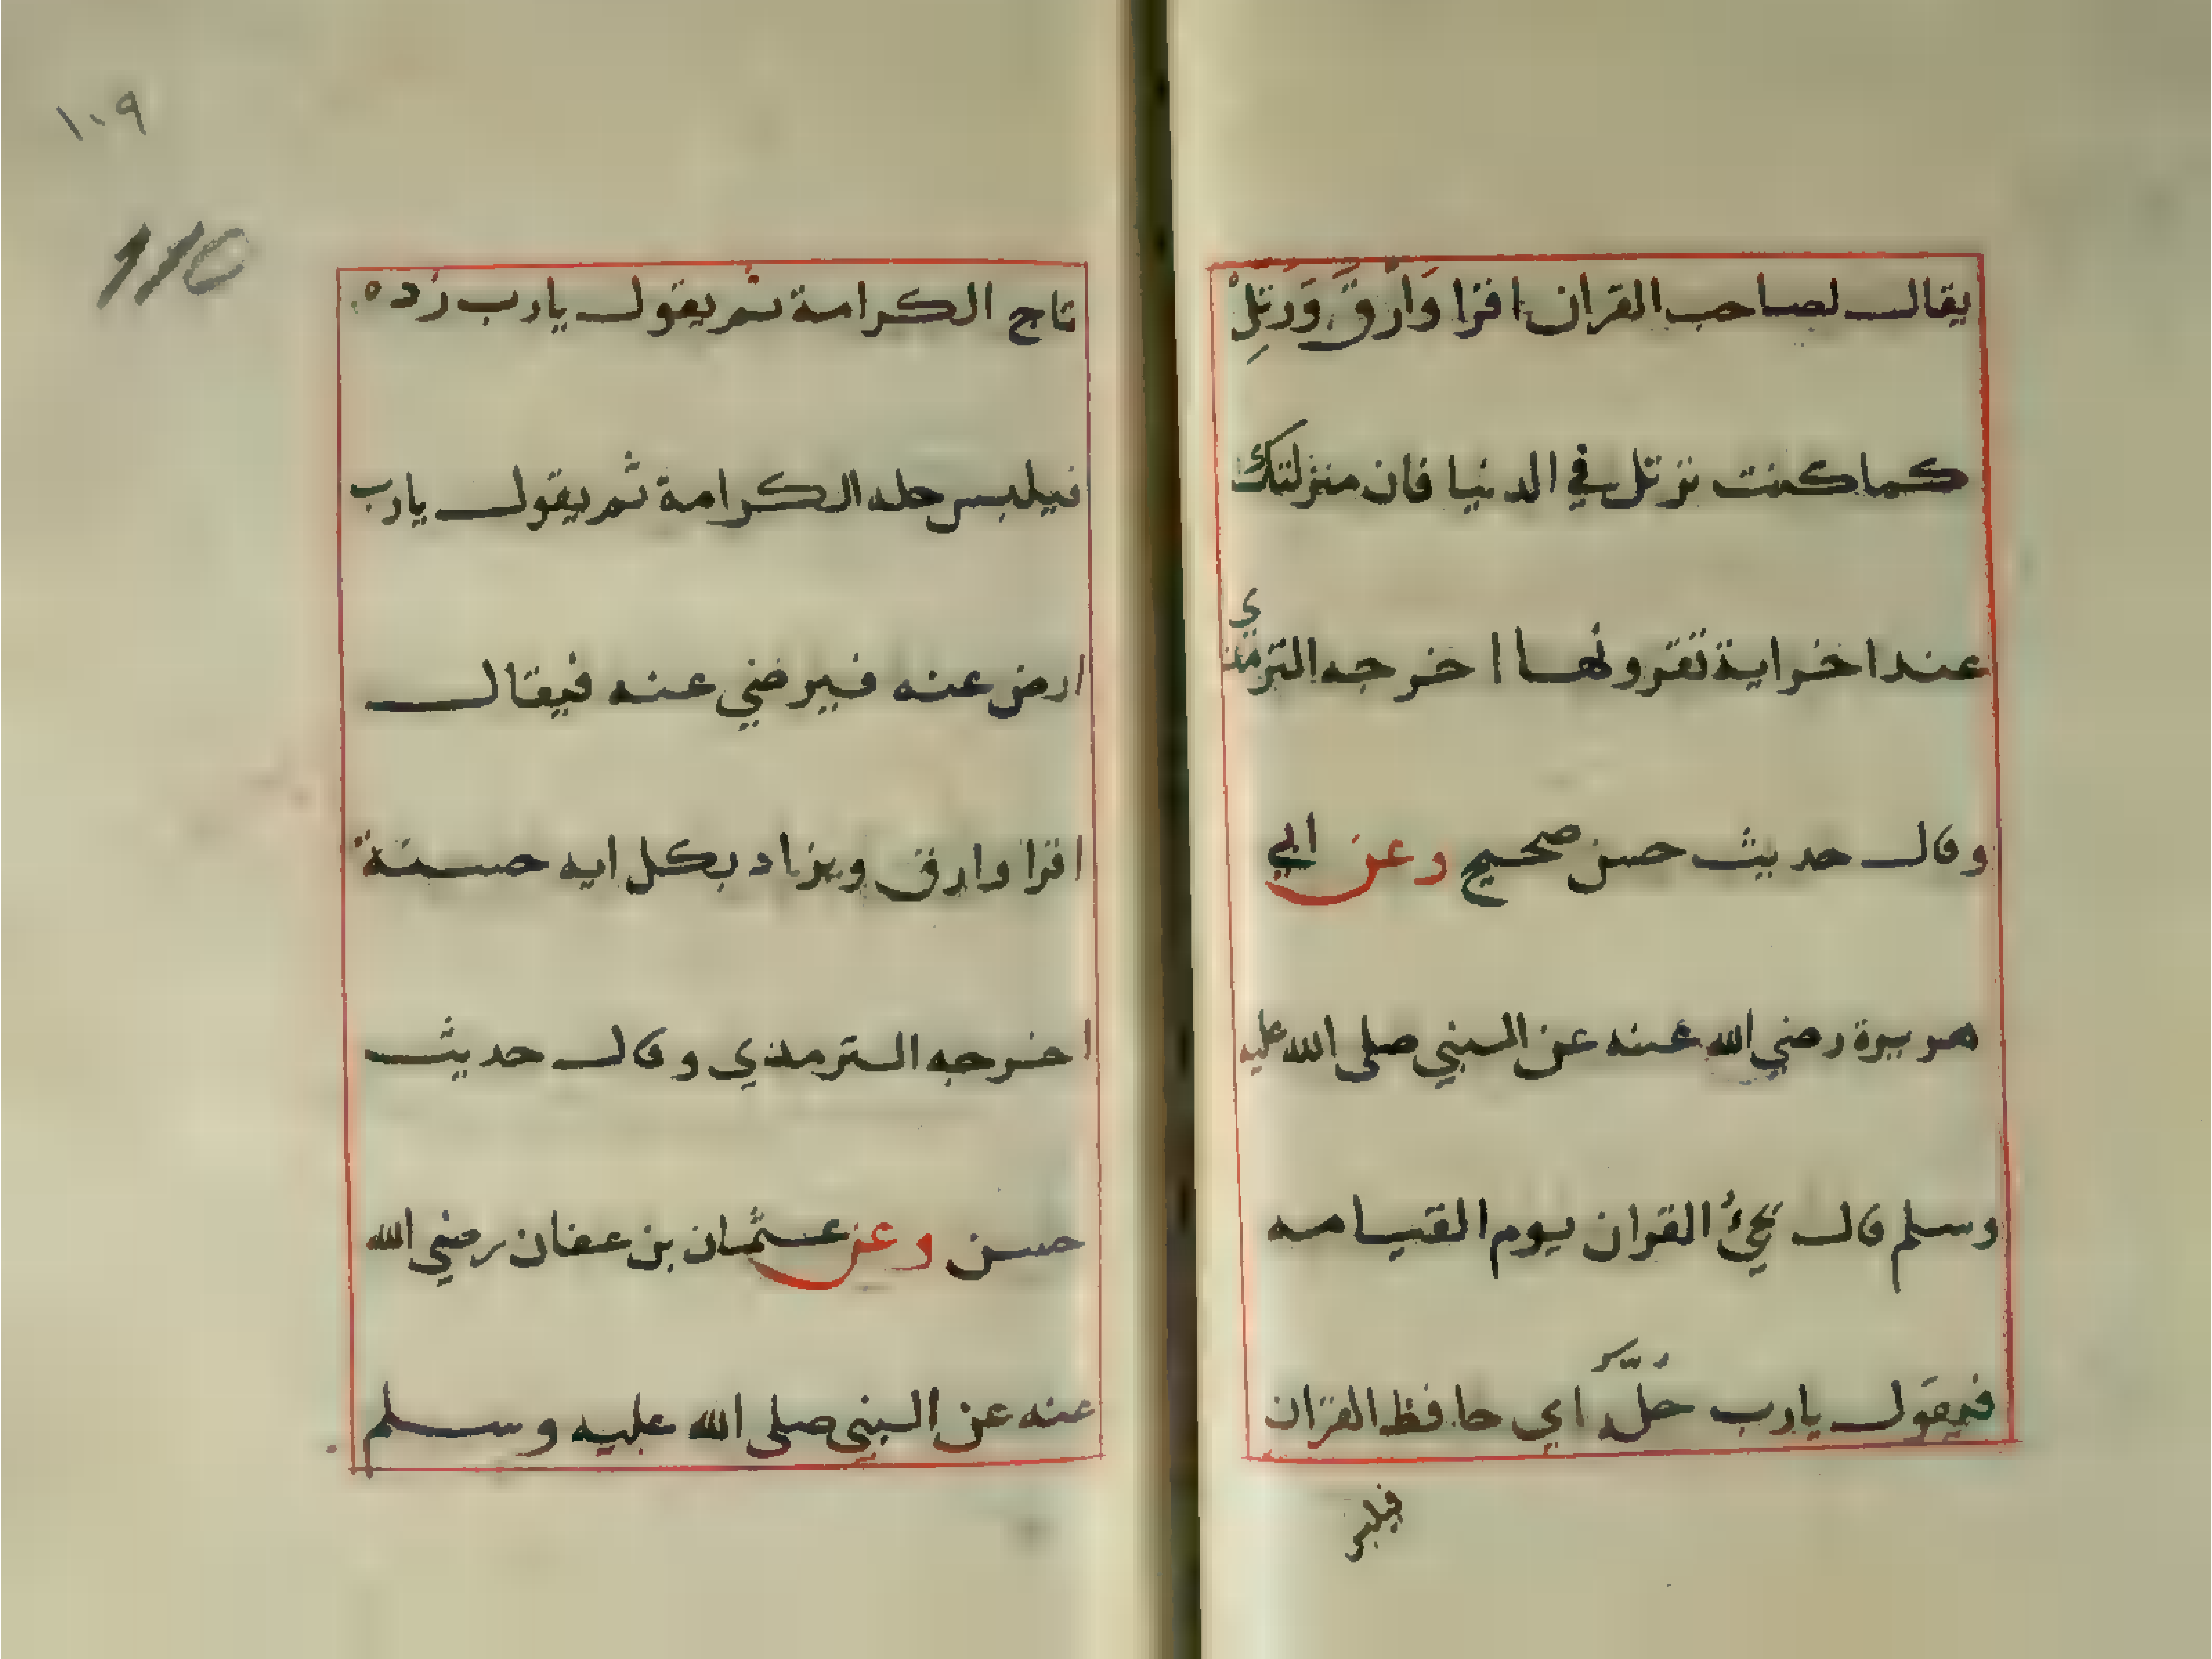 يقال لصاحب القران اقرا وَارْقَ وَرَتِّلْ
كما كنت ترتل في الدنيا فان منزلتك
عند اخر اية تقرو نها اخرجه الترمذي
وقال حديث حسن صحيح وعن ابي
هريرة رضي الله عنه عن النبي صلى الله عليه
وسلم قال يجئُ القران يوم القيامه
فيقول يارب حَلِّهِ اي حافظ القران
فيلبس
١٠٩
110
تاج الكرامة ثم يقول يارب زده
فيلبس حله الكرامة ثم يقول يارب
ارض عنه فيرضي عنه فيقال
اقرا وارق ويزاد بكل ايه حسنة
اخرجه الترمذي وقال حديث
حسن وعن عثمان بن عفان رضي الله
عنه عن النبي صلى الله عليه وسلم